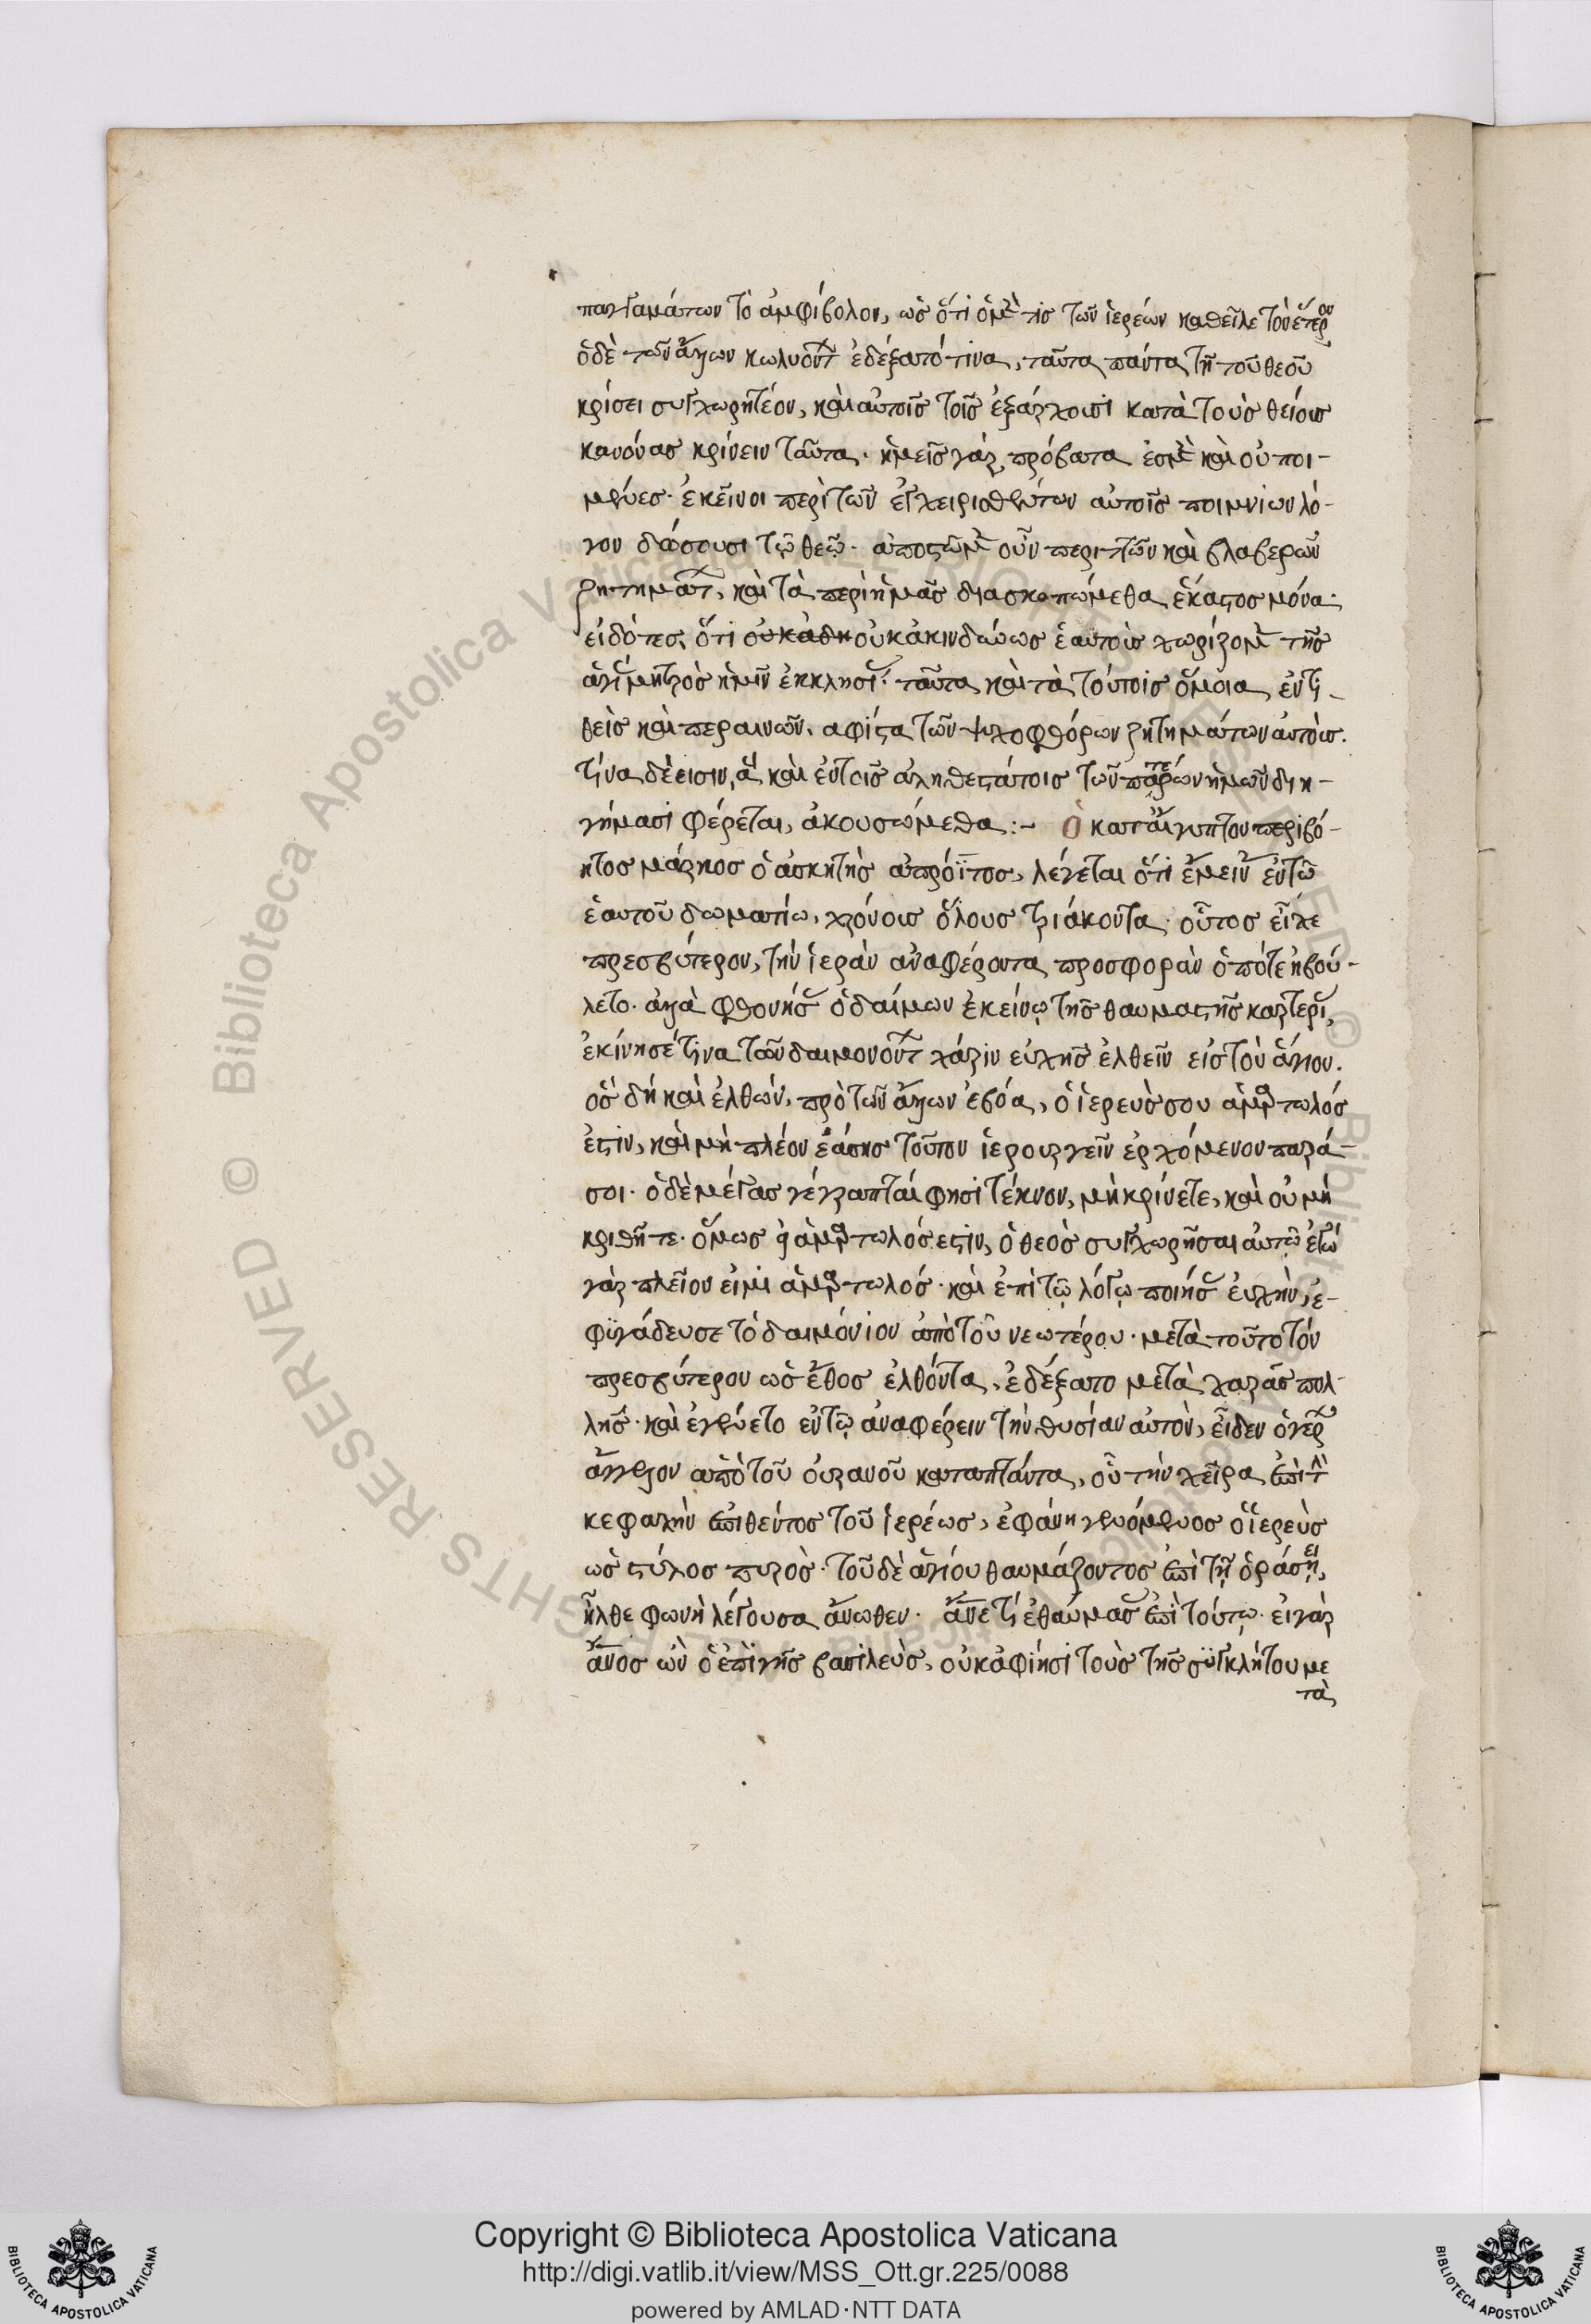 πανταμάτων τὸ ἀμφίβολον, ὡς ὅτι ὁ μέν τις τῶν ἱερέων καθεῖλε τὸν ἕτερον
ὁ δὲ τῶν ἄλλων κωλυόντων ἐδέξατό τινα, ταῦτα πάντα τῇ τοῦ θεοῦ
κρίσει συγχωρητέον, καὶ αὐτοῖς τοῖς ἐξάρχουσι κατὰ τοὺς θείους
κανόνας κρίνειν ταῦτα. ἡμεῖς γὰρ πρόβατα ἐσμὲν καὶ οὐ ποι-
μένες. ἐκεῖνοι περὶ τῶν ἐγχειρισθέντων αὐτοῖς ποιμνίων λό-
γον δώσουσι τῷ θεῷ. ἀποστῶμεν οὖν περιττῶν καὶ βλαβερῶν
ζητημάτων, καὶ τὰ περὶ ἡμᾶς διασκοπώμεθα ἕκαστος μόνα.
εἰδότες, ὅτι οὐκ ἀκινδύνως ἑαυτοὺς χωρίζομεν τῆς
ἁγίας μητρὸς ἡμῶν ἐκκλησίας. ταῦτα καὶ τὰ τούτοις ὅμοια, ἐντι-
θεὶς καὶ περαινῶν, ἀφίστα τῶν ψυχοφθόρων ζητημάτων αὐτούς.
τίνα δέ εἰσιν, ἃ καὶ ἐν τοῖς ἀληθεστάτοις τῶν πατέρων ἡμῶν διη-
γήμασι φέρεται, ἀκουσώμεθα :~ Ὁ κατ' αἴγυπτον περιβό-
ητος μάρκος ὁ ἀσκητὴς ἀπρόϊτος, λέγεται ὅτι ἔμεινεν ἐν τῷ
ἑαυτοῦ δωματίω, χρόνους ὅλους τριάκοντα. οὗτος εἶχε
πρεσβύτερον, τὴν ἱερὰν ἀναφέροντα προσφορὰν ὁπότε ἠβού-
λετο. ἀλλὰ φθονήσας ὁ δαίμων ἐκείνῳ τῆς θαυμαστῆς καρτερίας,
ἐκίνησέ τινα τῶν δαιμονούντων χάριν εὐχῆς ἐλθεῖν εἰς τὸν ἅγιον.
ὃς δὴ καὶ ἐλθών, πρὸ τῶν ἄλλων ἐβόα, ὁ ἱερεύς σου ἁμαρτωλός
ἐστιν, καὶ μὴ πλέον ἐάσῃς τοῦτον ἱερουργεῖν ἐρχόμενον παρά
σοι. ὁ δὲ μέγας γέγραπταί φησι τέκνον, μὴ κρίνετε, καὶ οὐ μὴ
κριθῆτε. ὅμως εἰ ἁμαρτωλός ἐστιν, ὁ θεὸς συγχωρῆσαι αὐτῷ ἐγὼ
γὰρ πλεῖον εἰμὶ ἁμαρτωλός. καὶ ἐπὶ τῷ λόγῳ ποιήσας εὐχήν, ἐ-
φυγάδευσε τὸ δαιμόνιον ἀπὸ τοῦ νεωτέρου. μετὰ τοῦτο τόν
πρεσβύτερον ὡς ἔθος ἐλθόντα, ἐδέξατο μετὰ χαρᾶς πολ-
λῆς. καὶ ἐγένετο ἐν τῷ ἀναφέρειν τὴν θυσίαν αὐτόν, εἶδεν ὁ γέρων
ἄγγελον ἀπὸ τοῦ οὐρανοῦ καταπτάντα, οὗ τὴν χεῖρα ἐπὶ τὴν
κεφαλὴν ἐπιθέντος τοῦ ἱερέως, ἐφάνη γενόμενος ὁ ἱερεὺς
ὡς στύλος πυρός. τοῦ δὲ ἁγίου θαυμάζοντος ἐπὶ τῇ ὁράσει,
ἦλθε φωνὴ λέγουσα ἄνωθεν. ἄνε τί ἐθαύμασας ἐπὶ τούτῳ. εἰ γὰρ
ἄνος ὢν ὁ ἐπὶ γῆς βασιλεὺς, οὐκ ἀφίησι τοὺς τῆς συγκλήτου με
τὰ
Copyright © Biblioteca Apostolica Vaticana
http://digi.vatlib.it/view/MSS_Ott.gr.225/0088
powered by AMLAD·NTT DATA